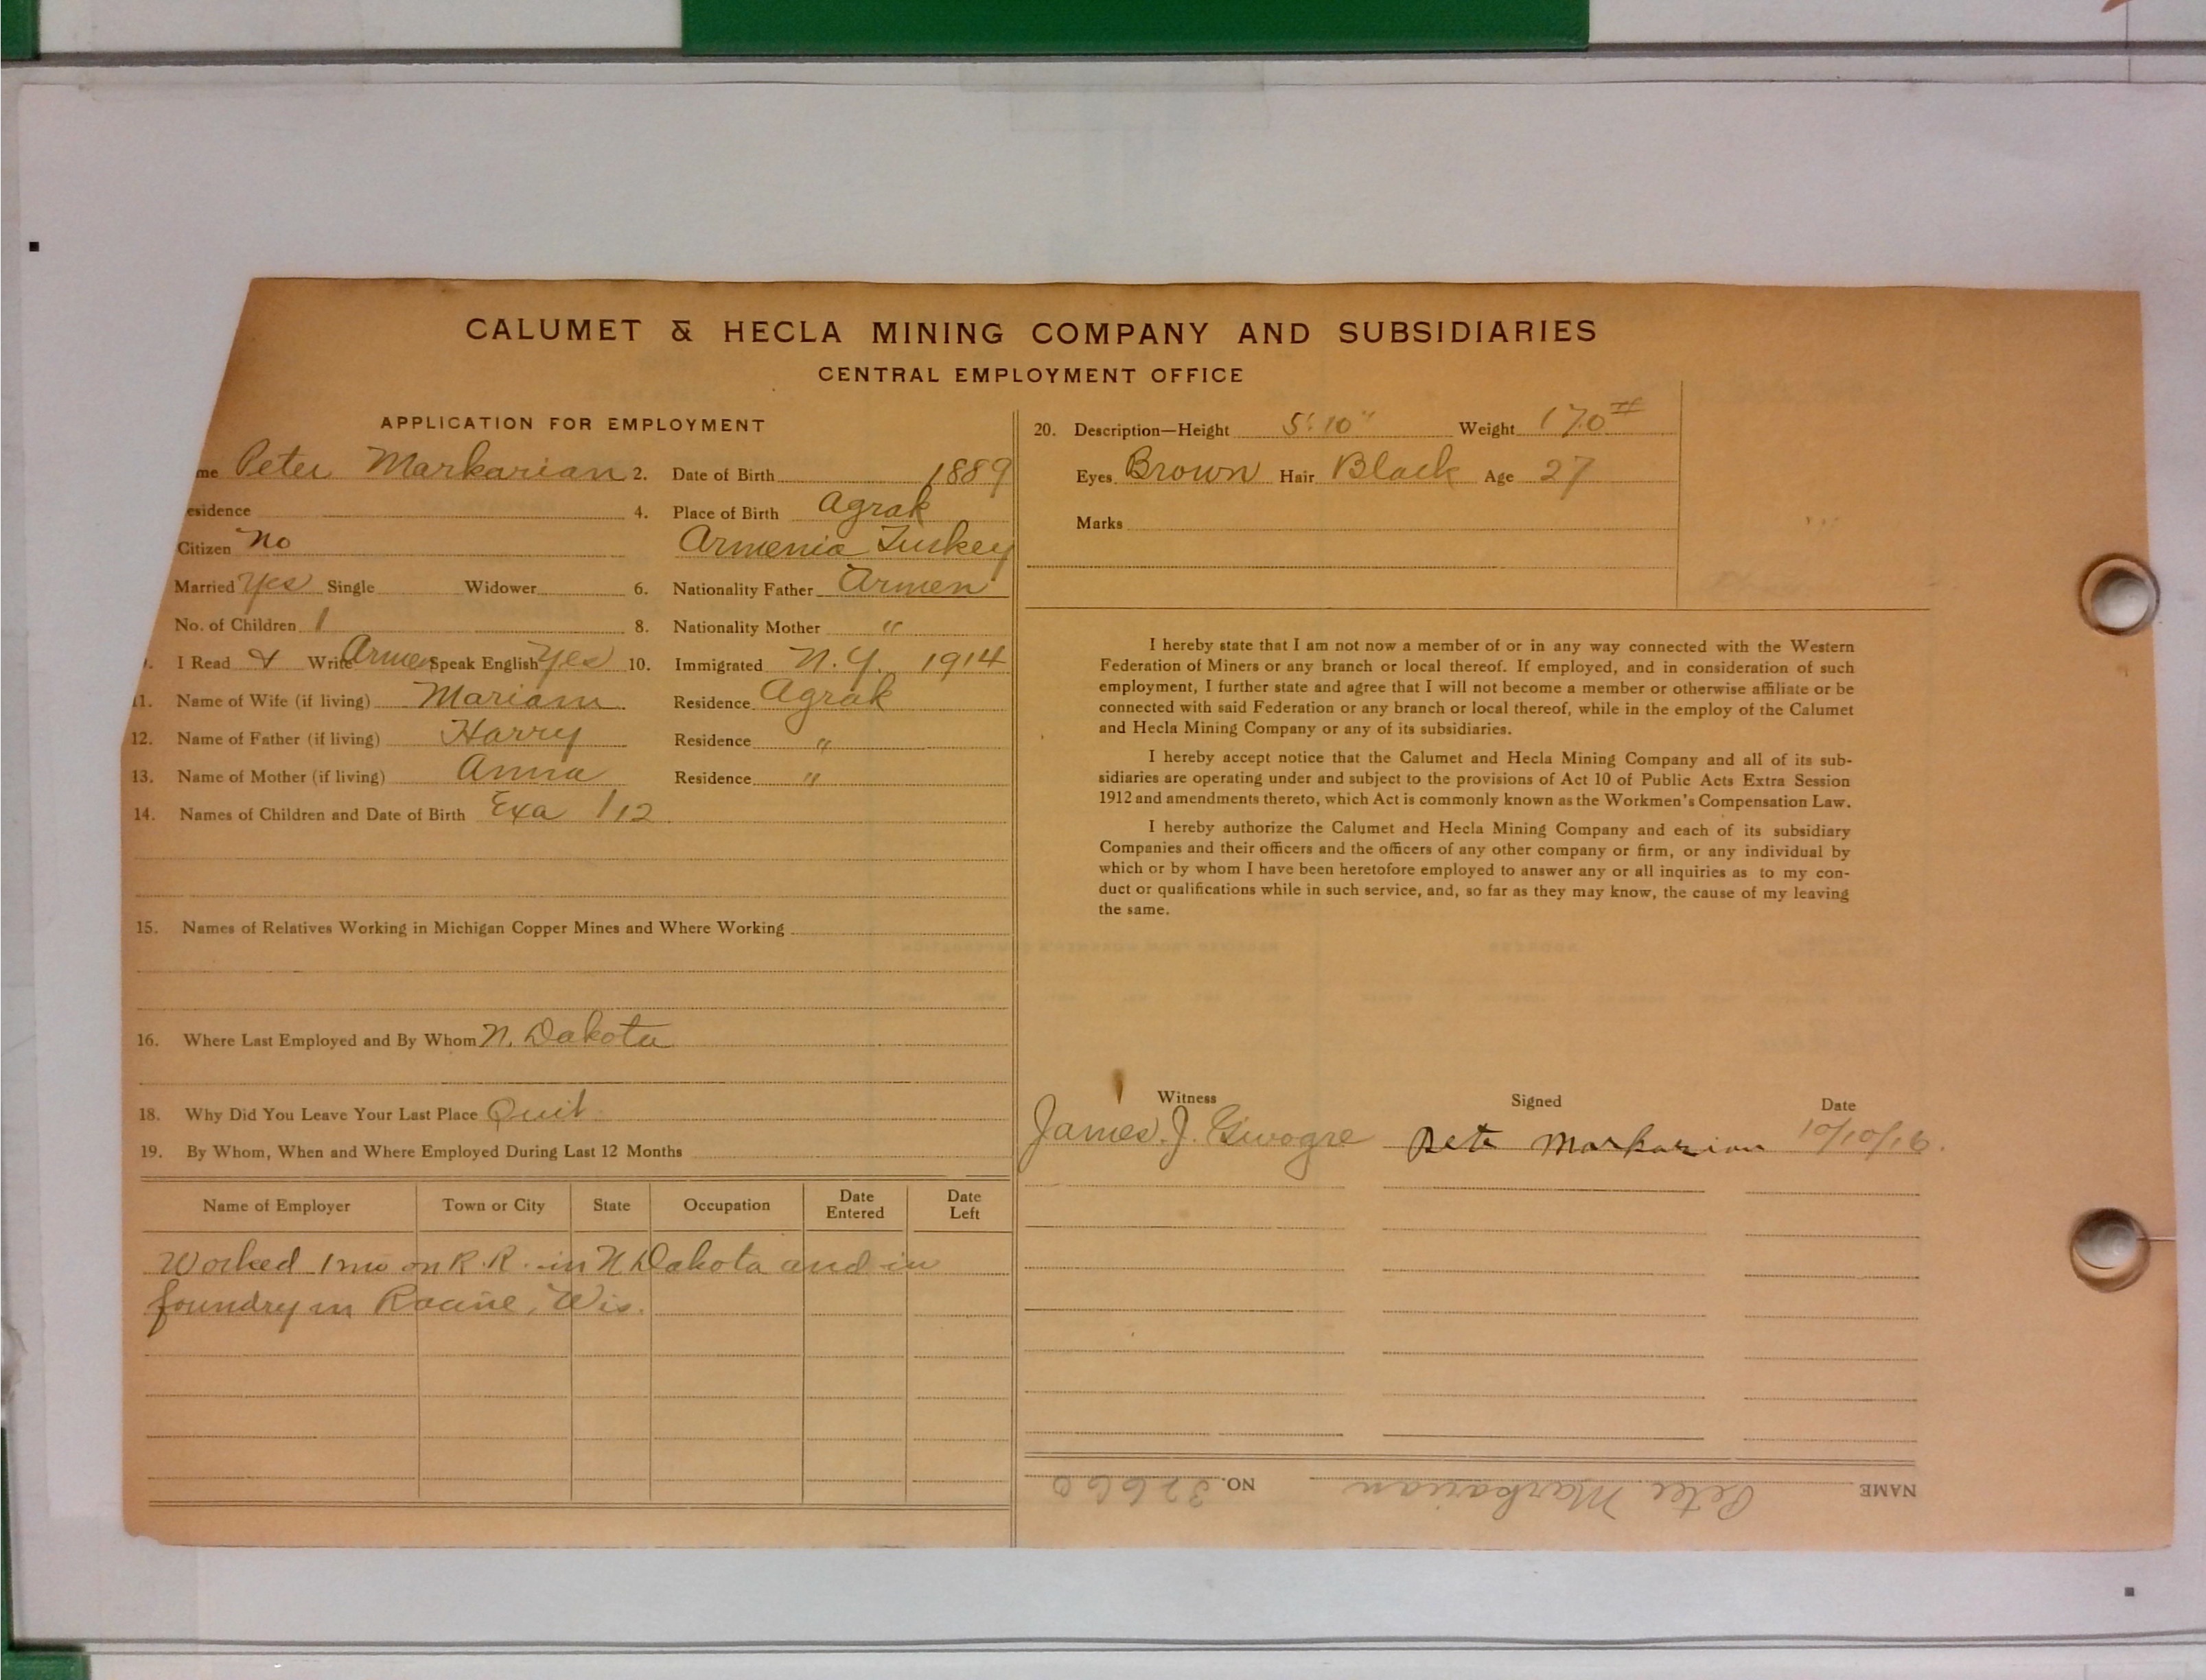 CALUMET & HECLA MINING COMPANY AND SUBSIDIARIES
CENTRAL EMPLOYMENT OFFICE
APPLICATION FOR EMPLOYMENT
me Peter Markarian 2. Date of Birth 1889
esidence 4. Place of Birth Agrak
Citizen No Armenia Turkey
Married Yes Single Widower 6. Nationality Father Armen
No. of Children 1 8. Nationality Mother "
9. I Read & Write Armen Speak English Yes 10. Immigrated N.Y. 1914
11. Name of Wife (if living) Mariam Residence Agrak
12. Name of Father (if living) Harry Residence "
13. Name of Mother (if living) Anna Residence "
14. Names of Children and Date of Birth Exa 1/12
15. Names of Relatives Working in Michigan Copper Mines and Where Working
16. Where Last Employed and By Whom N. Dakota
18. Why Did You Leave Your Last Place Quit
19. By Whom, When and Where Employed During Last 12 Months
Name of Employer Town or City State Occupation Date Entered Date Left
Worked 1 mo on R.R. in N Dakota and in
foundry in Racine, Wis.
20. Description—Height 5' 10" Weight 170 #
Eyes Brown Hair Black Age 27
Marks
I hereby state that I am not now a member of or in any way connected with the Western
Federation of Miners or any branch or local thereof. If employed, and in consideration of such
employment, I further state and agree that I will not become a member or otherwise affiliate or be
connected with said Federation or any branch or local thereof, while in the employ of the Calumet
and Hecla Mining Company or any of its subsidiaries.
I hereby accept notice that the Calumet and Hecla Mining Company and all of its sub-
sidiaries are operating under and subject to the provisions of Act 10 of Public Acts Extra Session
1912 and amendments thereto, which Act is commonly known as the Workmen's Compensation Law.
I hereby authorize the Calumet and Hecla Mining Company and each of its subsidiary
Companies and their officers and the officers of any other company or firm, or any individual by
which or by whom I have been heretofore employed to answer any or all inquiries as to my con-
duct or qualifications while in such service, and, so far as they may know, the cause of my leaving
the same.
Witness Signed Date
James. J. Pete Markarian 10/10/16.
NAME Peter Markarian NO. 32660